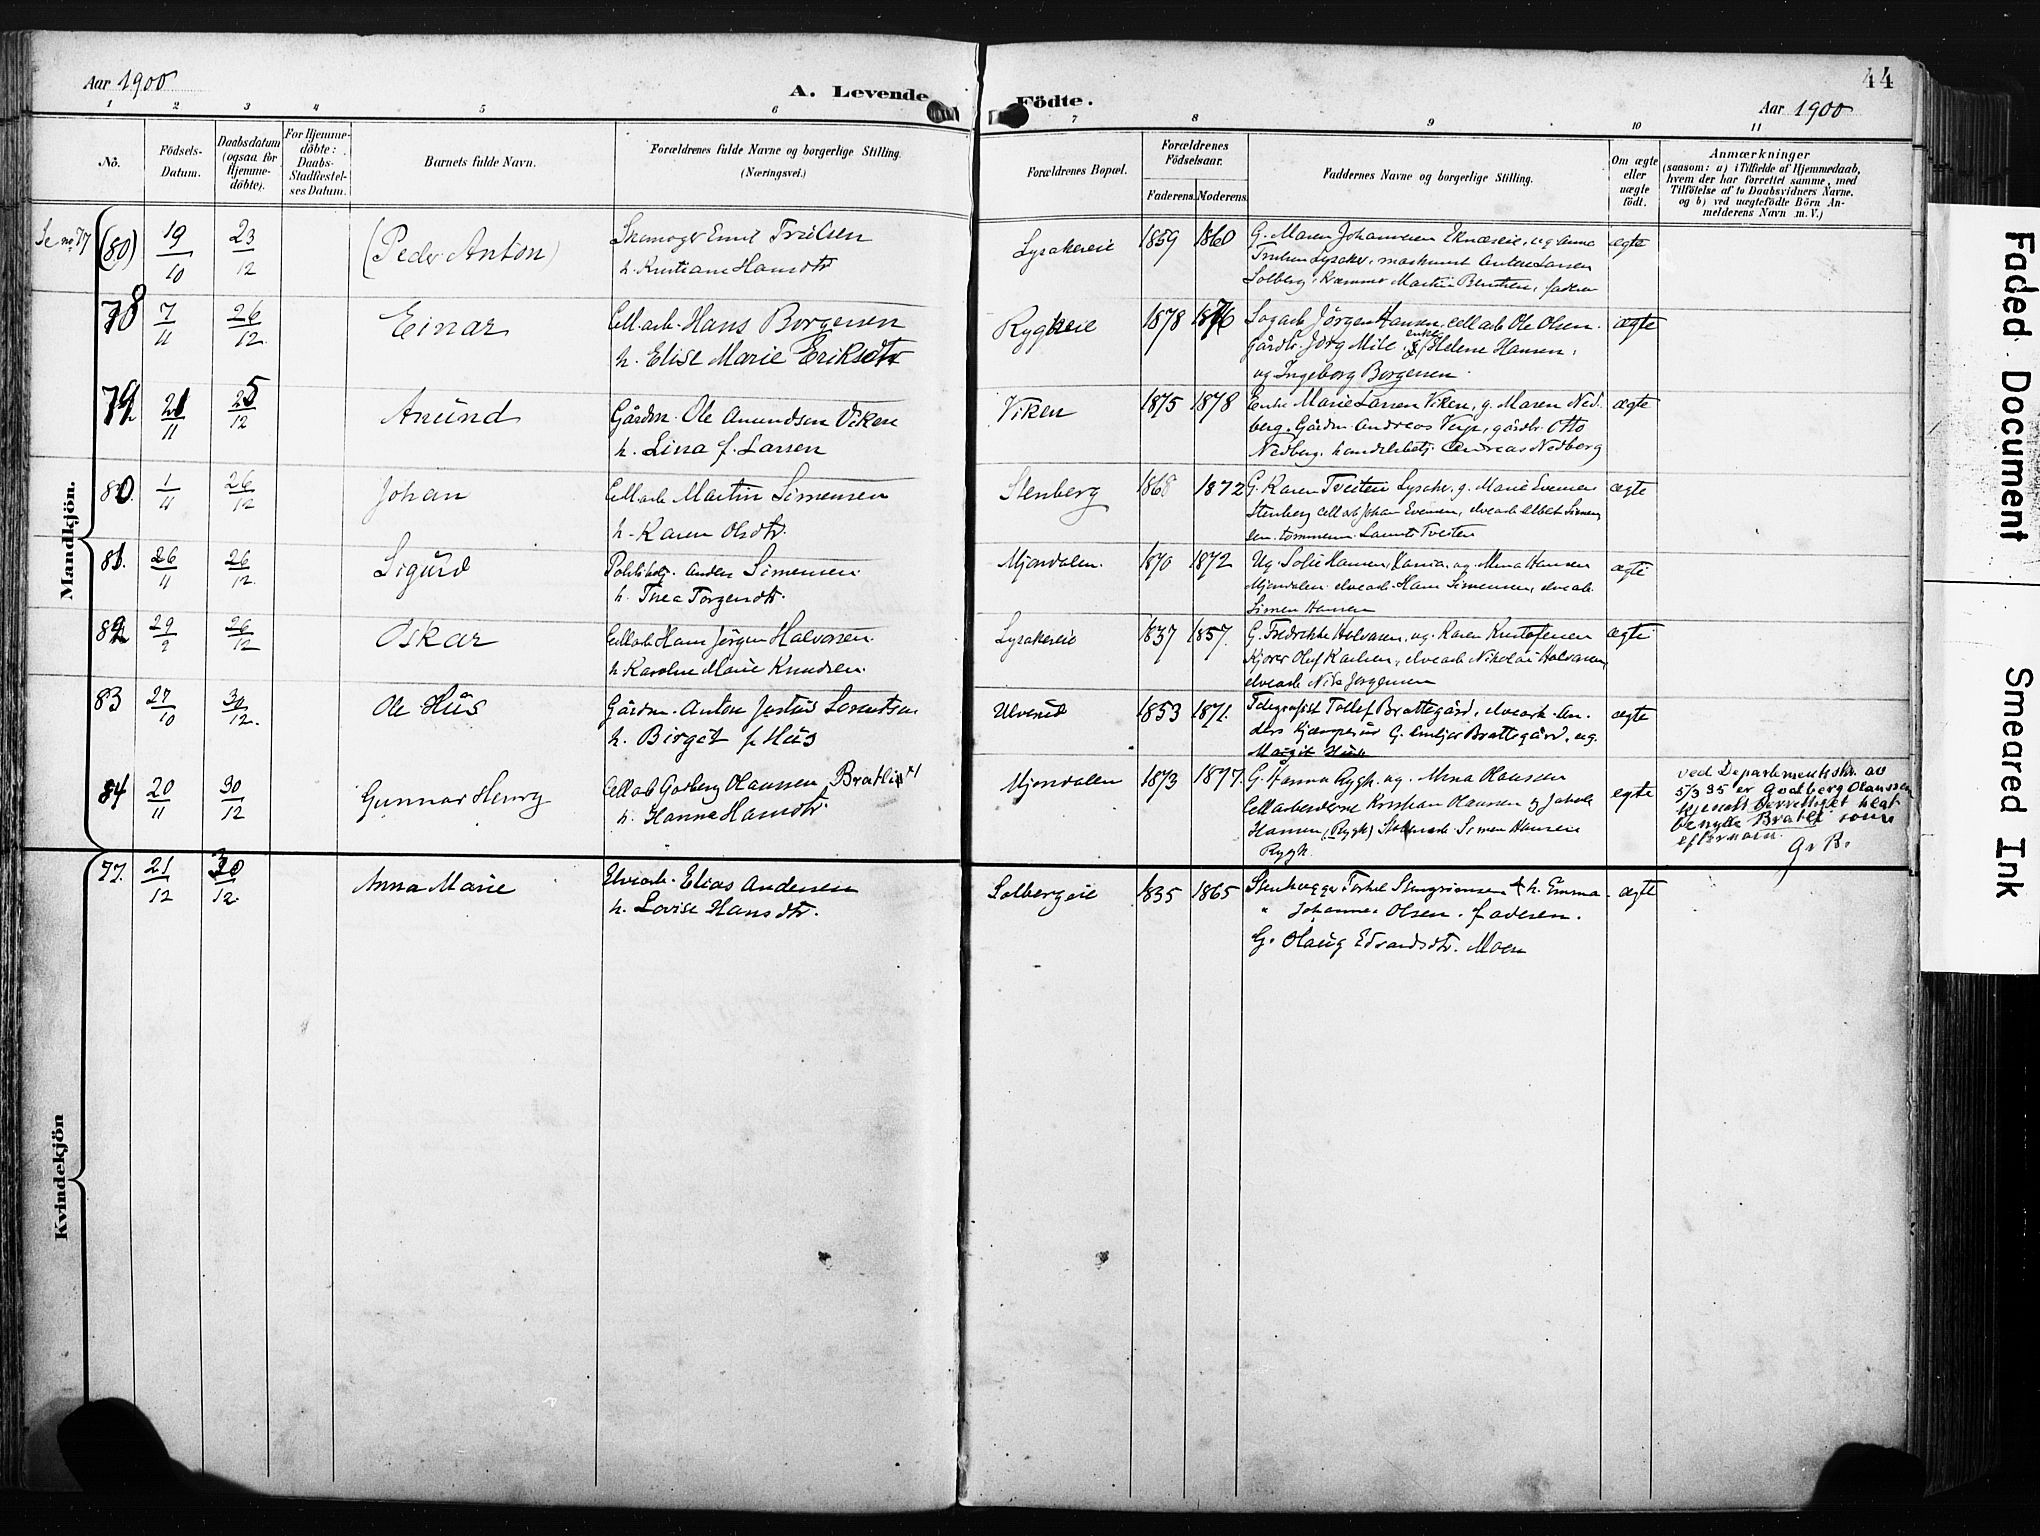 Aar 1900
A. Levende Födte.
44
Aar 1900
1 2 3 4 5 6 7 8 9 10 11
No.
Födsels-Datum.
Daabsdatum (ogsaa for Hjemme-döbte).
For Hjemme-döbte: Daabs-Stadfæstel-ses Datum.
Barnets fulde Navn.
Forældrenes fulde Navne og borgerlige Stilling. (Næringsvei.)
Forældrenes Bopæl.
Forældrenes Födselsaar.
Faderens. Moderens.
Faddernes Navne og borgerlige Stilling.
Om ægte eller uægte födt.
Anmærkninger
(saasom: a) i Tilfælde af Hjemmedaab,
hvem der har forrettet samme, med
Tilföielse af to Daabsvidners Navne,
og b) ved uægtefödte Börn An-
melderens Navn m. V.)
Mandkjön.
Se no 77 (80) 19/10 23/12 (Peder Anton)
Skomager Emil Truelsen
h. Kristiane Hansdtr
Lysakereie 1859 1860
G. Maren Johannesen Eknæseie, ug. Anna
Truelsen Lysaker, maskinist Anton Larsen
Solberg, Kræmmer Martin Berntsen, faderen
ægte
78 7/11 26/12. Einar
Cell.arb. Hans Borgersen
h. Elise Marie Eriksdtr
Rygheie 1878 1876
Sagarb Jörgen Hansen, cellarb Ole Olsen.
gårdbr. Jörg Mile, enke Helene Hansen,
ug Ingeborg Borgersen.
ægte
79 21/11 25/12 Amund
Gårdm. Ole Amundsen Viken
h. Lina f. Larsen
Viken 1875 1878
Enke Marie Larsen Viken, g. Maren Ned-
berg, Gårdm Andreas Veje, gårdbr. Otto
Nedberg, handelsbetj. Andreas Nedberg
ægte
80. 1/11 26/12 Johan
Cellarb Martin Simensen
h. Karen Olsdtr.
Stenberg 1868 1872
G. Karen Tveiten Lysaker, g. Marie Evensen
Stenberg cellarb Johan Evensen, elvearb Albert Simen-
sen. tömmerm. Laurits Tveiten
ægte
81. 26/11 26/12. Sigurd
Politibetj. Anders Simensen.
h. Thea Torgersdtr.
Mjöndalen. 1870 1872
Ug. Sofie Hansen, Xania, ug. Mina Hansen
Mjöndalen elvearb Hans Simensen, elvearb
Simen Hansen
ægte
82 29/9 26/12 Oskar
Cellarb Hans Jörgen Halvorsen.
h. Karoline Marie Knudsen.
Lysakereie 1837 1857.
G. Fredrikke Halvorsen, ug. Karen Kristofersen
Kjörer Olaf Karlsen, elvearb Nikolai Halvorsen,
elvearb Nils Jörgensen
ægte
83 27/10 30/12. Ole Hüs
Gårdm. Anton Justus Lorentsen.
h. Birgit f. Hüs
Ulverud 1853 1871.
Telegrafist Tollef Brattegård, elvearb. An-
ders Kjæmperud G. Emilje Brattegård, ug.
Margit Hüs
ægte
84 20/11 30/12 Gunnar Henry
Cellarb Godberg Olaussen Bratlie
h. Hanna Hansdtr.
Mjöndalen 1873 1877.
G. Hanna Rygh. ug. Mina Olaussen
Cellarbeiderne Kristian Olaussen og Jakob
Hansen (Rygh) Simen Hansen
Rygh.
egte
ved Departementsskr. av
5/3 35 er Godtberg Olaussen
benytte Bratli som
efternavn. G. B.
Kvindekjön
77. 21/12 30/12. Anna Marie
Elvearb. Elias Andersen
h. Lovise Hansdtr.
Solbergeie 1835 1865
Stenhugger Torkel Stengrimsen & h. Emma
" Johannes Olsen. faderen.
G. Olaug Edvardsdtr. Moen
ægte
Faded Document
Smeared Ink